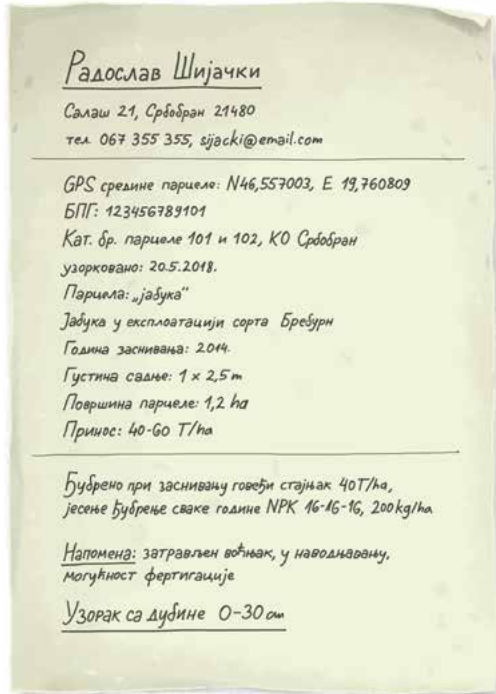 Радослав Шијачки
Салаш 21, Србобран 21480
тел. 067 355 355, sijacki@email.com
GPS средине парцеле: N46,557003, E 19,760809
БПГ: 123456789101
Кат. бр. парцеле 101 и 102, КО Србобран
узорковано: 20.5.2018.
Парцела: „јабука“
Јабука у експлоатацији сорта Бребурн
Година заснивања: 2014.
Густина садње: 1 x 2,5 m
Површина парцеле: 1,2 ha
Принос: 40-60 T/ha
Ђубрено при заснивању говеђи стајњак 40T/ha,
јесење ђубрење сваке године NPK 16-16-16, 200kg/ha
Напомена: затрављен воћњак, у наводнавању,
могућност фертигације
Узорак са дубине 0-30 cm